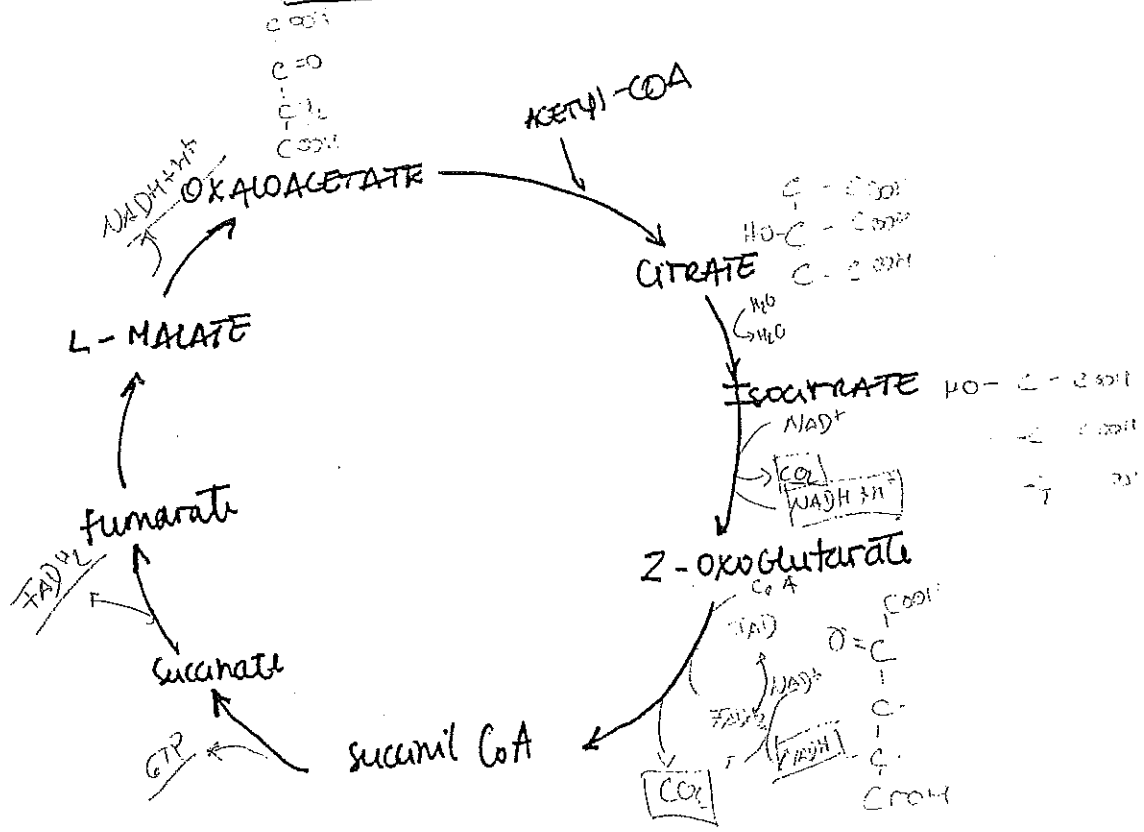 COOH
C=O
CH2
COOH
ACETYL-COA
NADH+H+
OXALOACETATE
C - COOH
HO-C - COOH
C - COOH
CITRATE
H2O
H2O
L-MALATE
ISOCITRATE
HO- C - COOH
NAD+
CO2
NADH+H+
fumarate
2-oxoglutarate
CoA
COOH
FAD
O=C
FADH2
NAD+
C
FADH2
succinate
succinil CoA
NADH
C
GTP
CO2
COOH